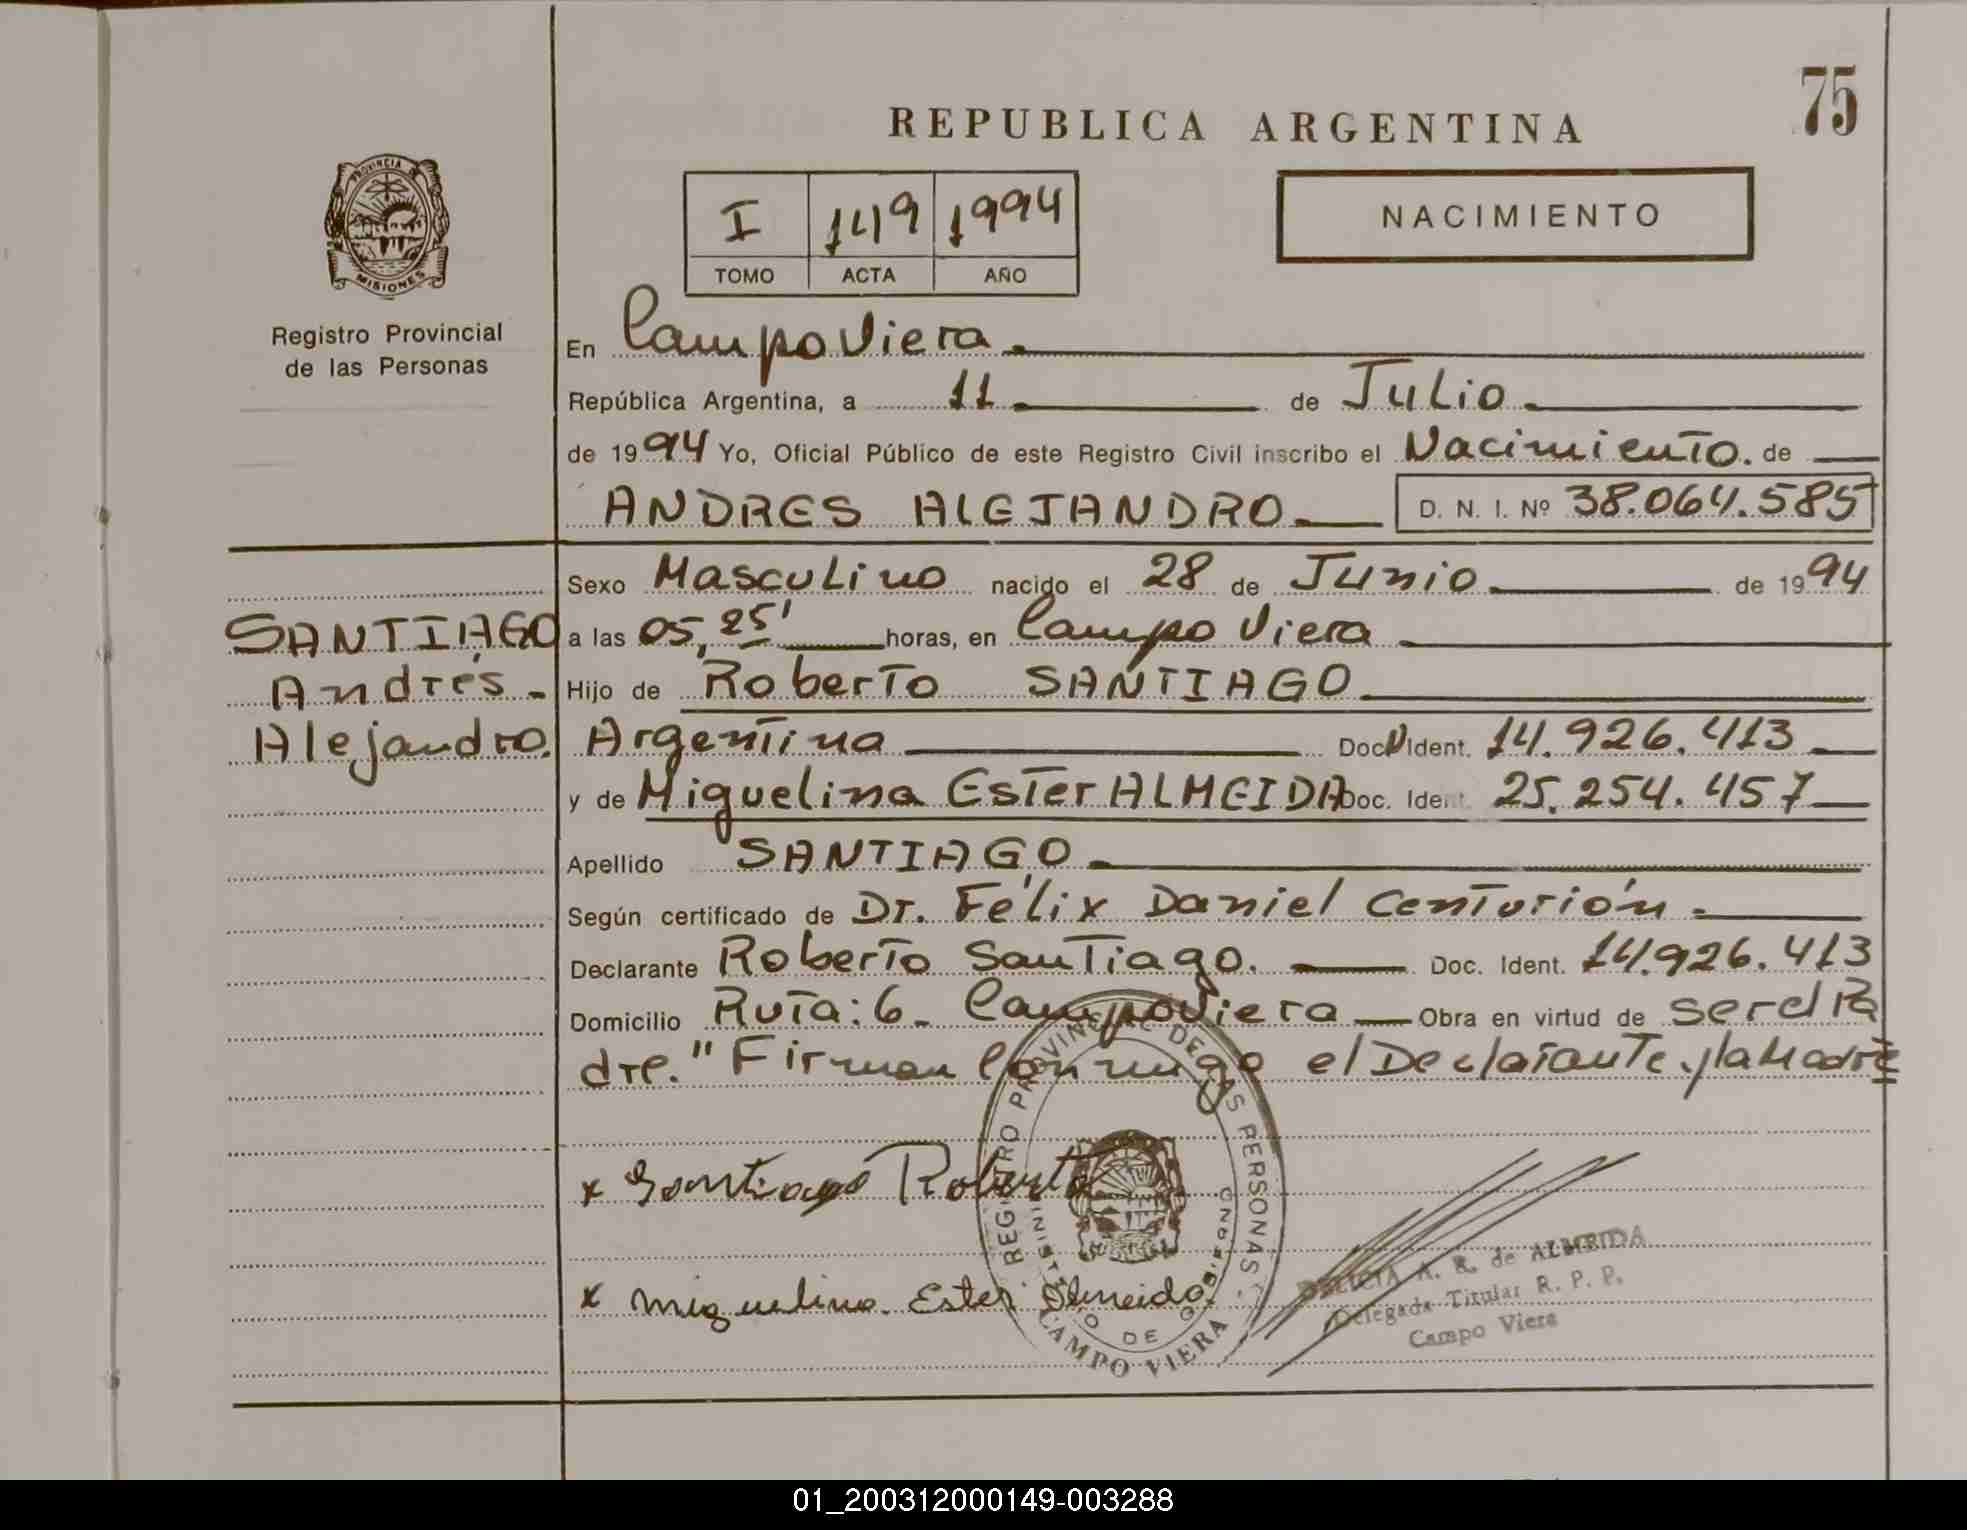 75
REPUBLICA ARGENTINA
PROVINCIA DE
MISIONES
Registro Provincial
de las Personas
I 149 1994
TOMO ACTA AÑO
NACIMIENTO
En Campo Viera.
República Argentina, a 11 de Julio
de 1994 Yo, Oficial Público de este Registro Civil inscribo el Nacimiento. de
ANDRES ALEJANDRO D. N. I. Nº 38.064.585
Sexo Masculino nacido el 28 de Junio de 1994
SANTIAGO
Andrés
Alejandro.
a las 05,25' horas, en Campo Viera
Hijo de Roberto SANTIAGO
Argentina Doc. Ident. 14.926.413
y de Miguelina Ester ALMEIDA Doc. Ident. 25.254.457
Apellido SANTIAGO
Según certificado de Dr. Félix Daniel Centurión
Declarante Roberto Santiago. Doc. Ident. 14.926.413
Domicilio Ruta: 6 - Campo Viera Obra en virtud de ser el Pa
dre." Firman Conmigo el Declarante y la Madre
x Santiago Roberto
x Miguelina Ester Almeida.
REGISTRO PROVINCIAL DE LAS PERSONAS
MINISTERIO DE GOBIERNO
CAMPO VIERA
A. R. de ALMEIDA
Delegada Titular R. P. P.
Campo Viera
01_200312000149-003288